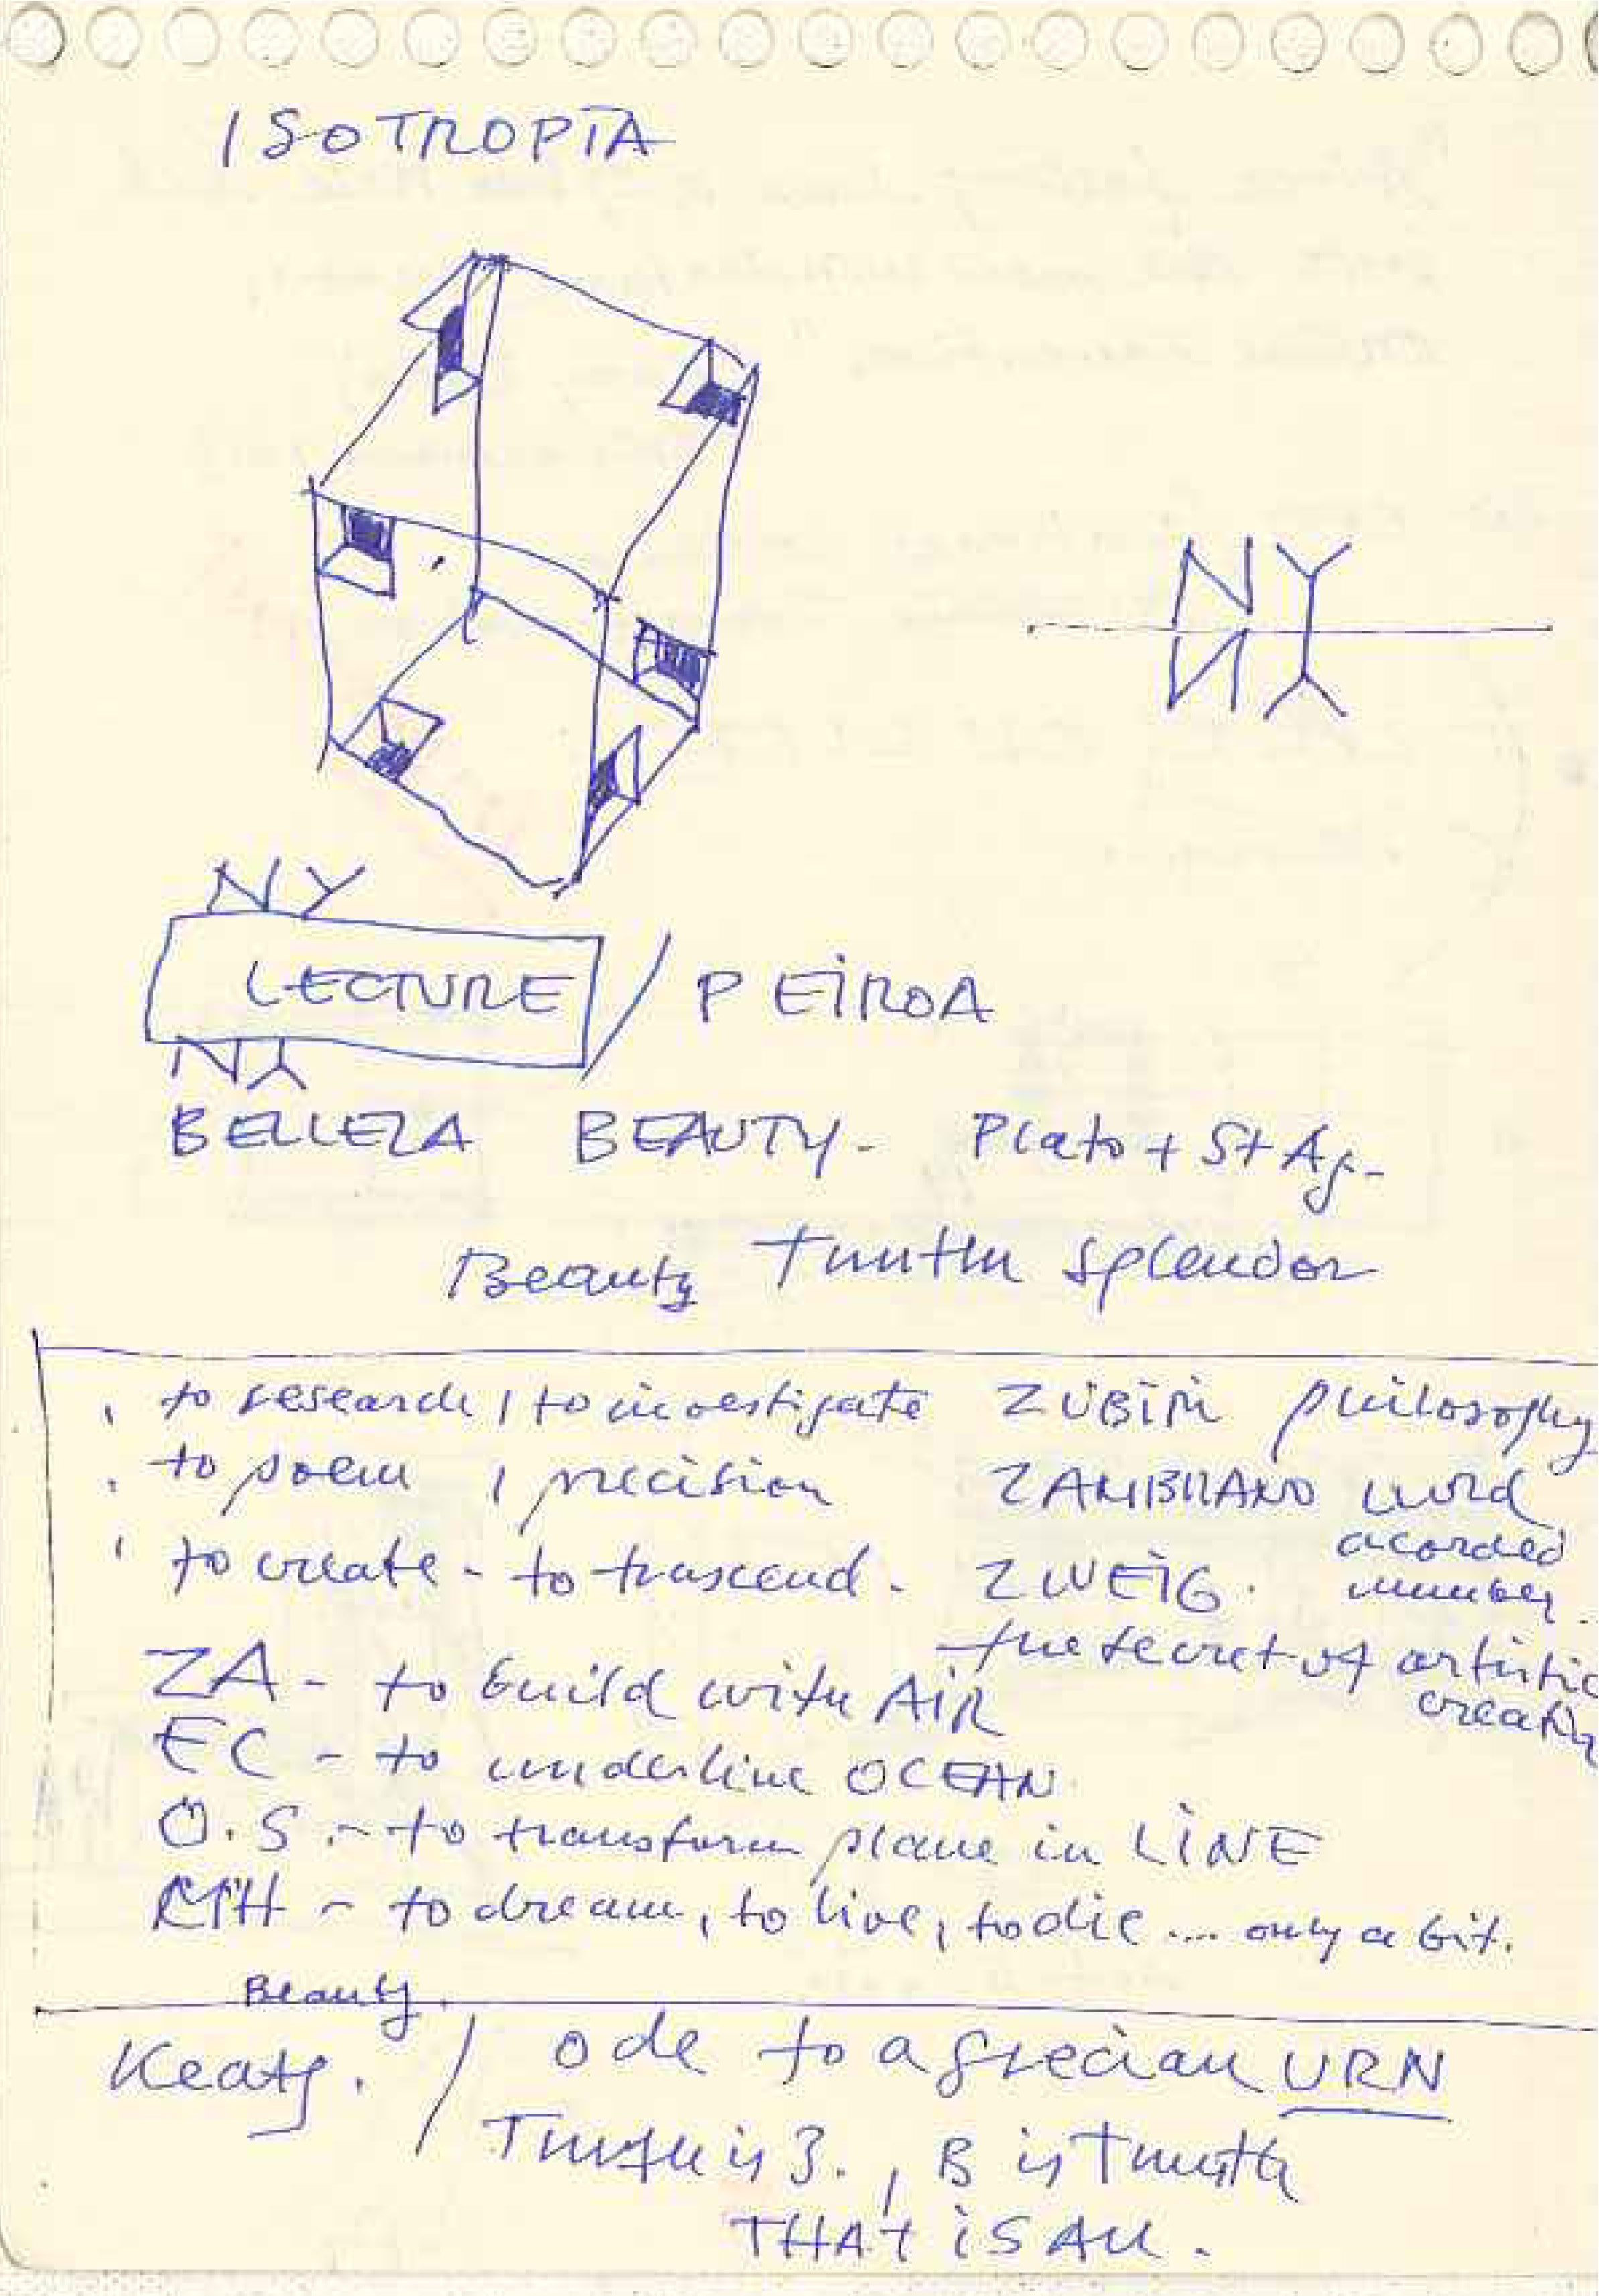 ISOTROPIA
NY
NY
NY
LECTURE / PEIROA
NY
BELLEZA BEAUTY - Plato + St Ag-
Beauty Truth splendor
to research, to investigate ZUBIRI philosophy
to poem, precision ZAMBRANO word
acorded
to create - to trascend. ZWEIG. number
the secret of artistic
creation
ZA - to build with AIR
EC - to underline OCEAN
O.S. - to transform plane in LINE
RTH - to dream, to live, to die .... only a bit.
Beauty.
Keats. / Ode to a grecian URN
Truth is B., B is Truth
THAT IS ALL.